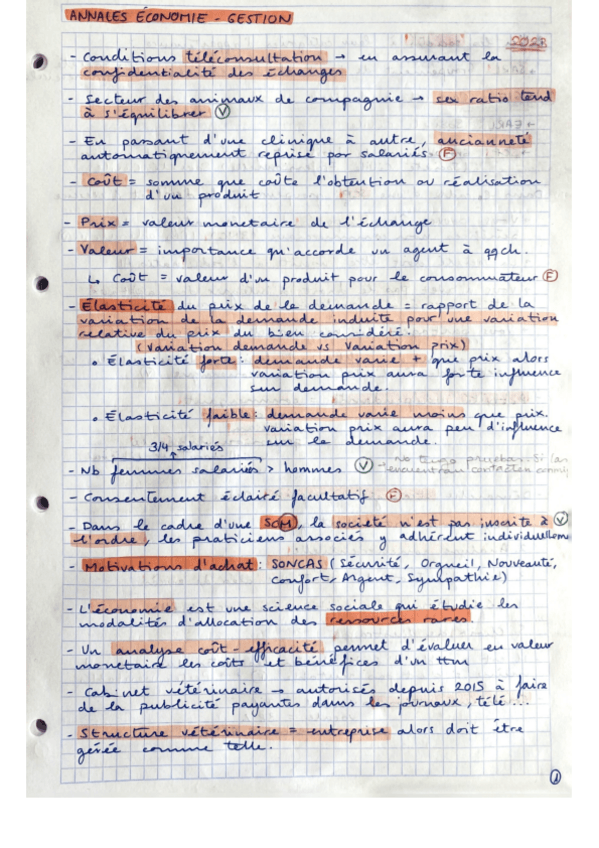 ANNALES ÉCONOMIE - GESTION
2023
- Conditions téléconsultation → en assurant la
confidentialité des échanges
- Secteur des animaux de compagnie → sex ratio tend
à s'équilibrer V
- En passant d'une clinique à autre, ancianneté
automatiquement reprise par salariés. F
- Coût = somme que coûte l'obtention ou réalisation
d'un produit
- Prix = valeur monetaire de l'échange
- Valeur = importance qu'accorde un agent à qqch.
↳ Coût = valeur d'un produit pour le consommateur F
- Élasticité du prix de la demande = rapport de la
variation de la demande induite pour une variation
relative du prix du bien considéré.
(Variation demande vs Variation prix)
• Élasticité forte: demande varie + que prix alors
variation prix aura forte influence
sur demande.
• Élasticité faible: demande varie moins que prix.
variation prix aura peu d'influence
sur la demande.
3/4 salariés
- Nb femmes salariés > hommes V No tengo pruebas. Si las
encuentran contacten conmig
- Consentement éclairé facultatif F
- Dans le cadre d'une SCM, la société n'est pas inscrite à V
l'ordre, les praticiens associés y adhérent individuellem
- Motivations d'achat: SONCAS (Sécurité, Orgueil, Nouveauté,
Confort, Argent, Sympathie)
- L'économie est une science sociale qui étudie les
modalités d'allocation des ressources rares.
- Un analyse coût-efficacité permet d'évaluer en valeur
monetaire les coûts et bénéfices d'un ttm
- Cabinet vétérinaire → autorisés depuis 2015 à faire
de la publicité payantes dans les journaux, télé...
- Structure vétérinaire = entreprise alors doit être
gérée comme telle.
1